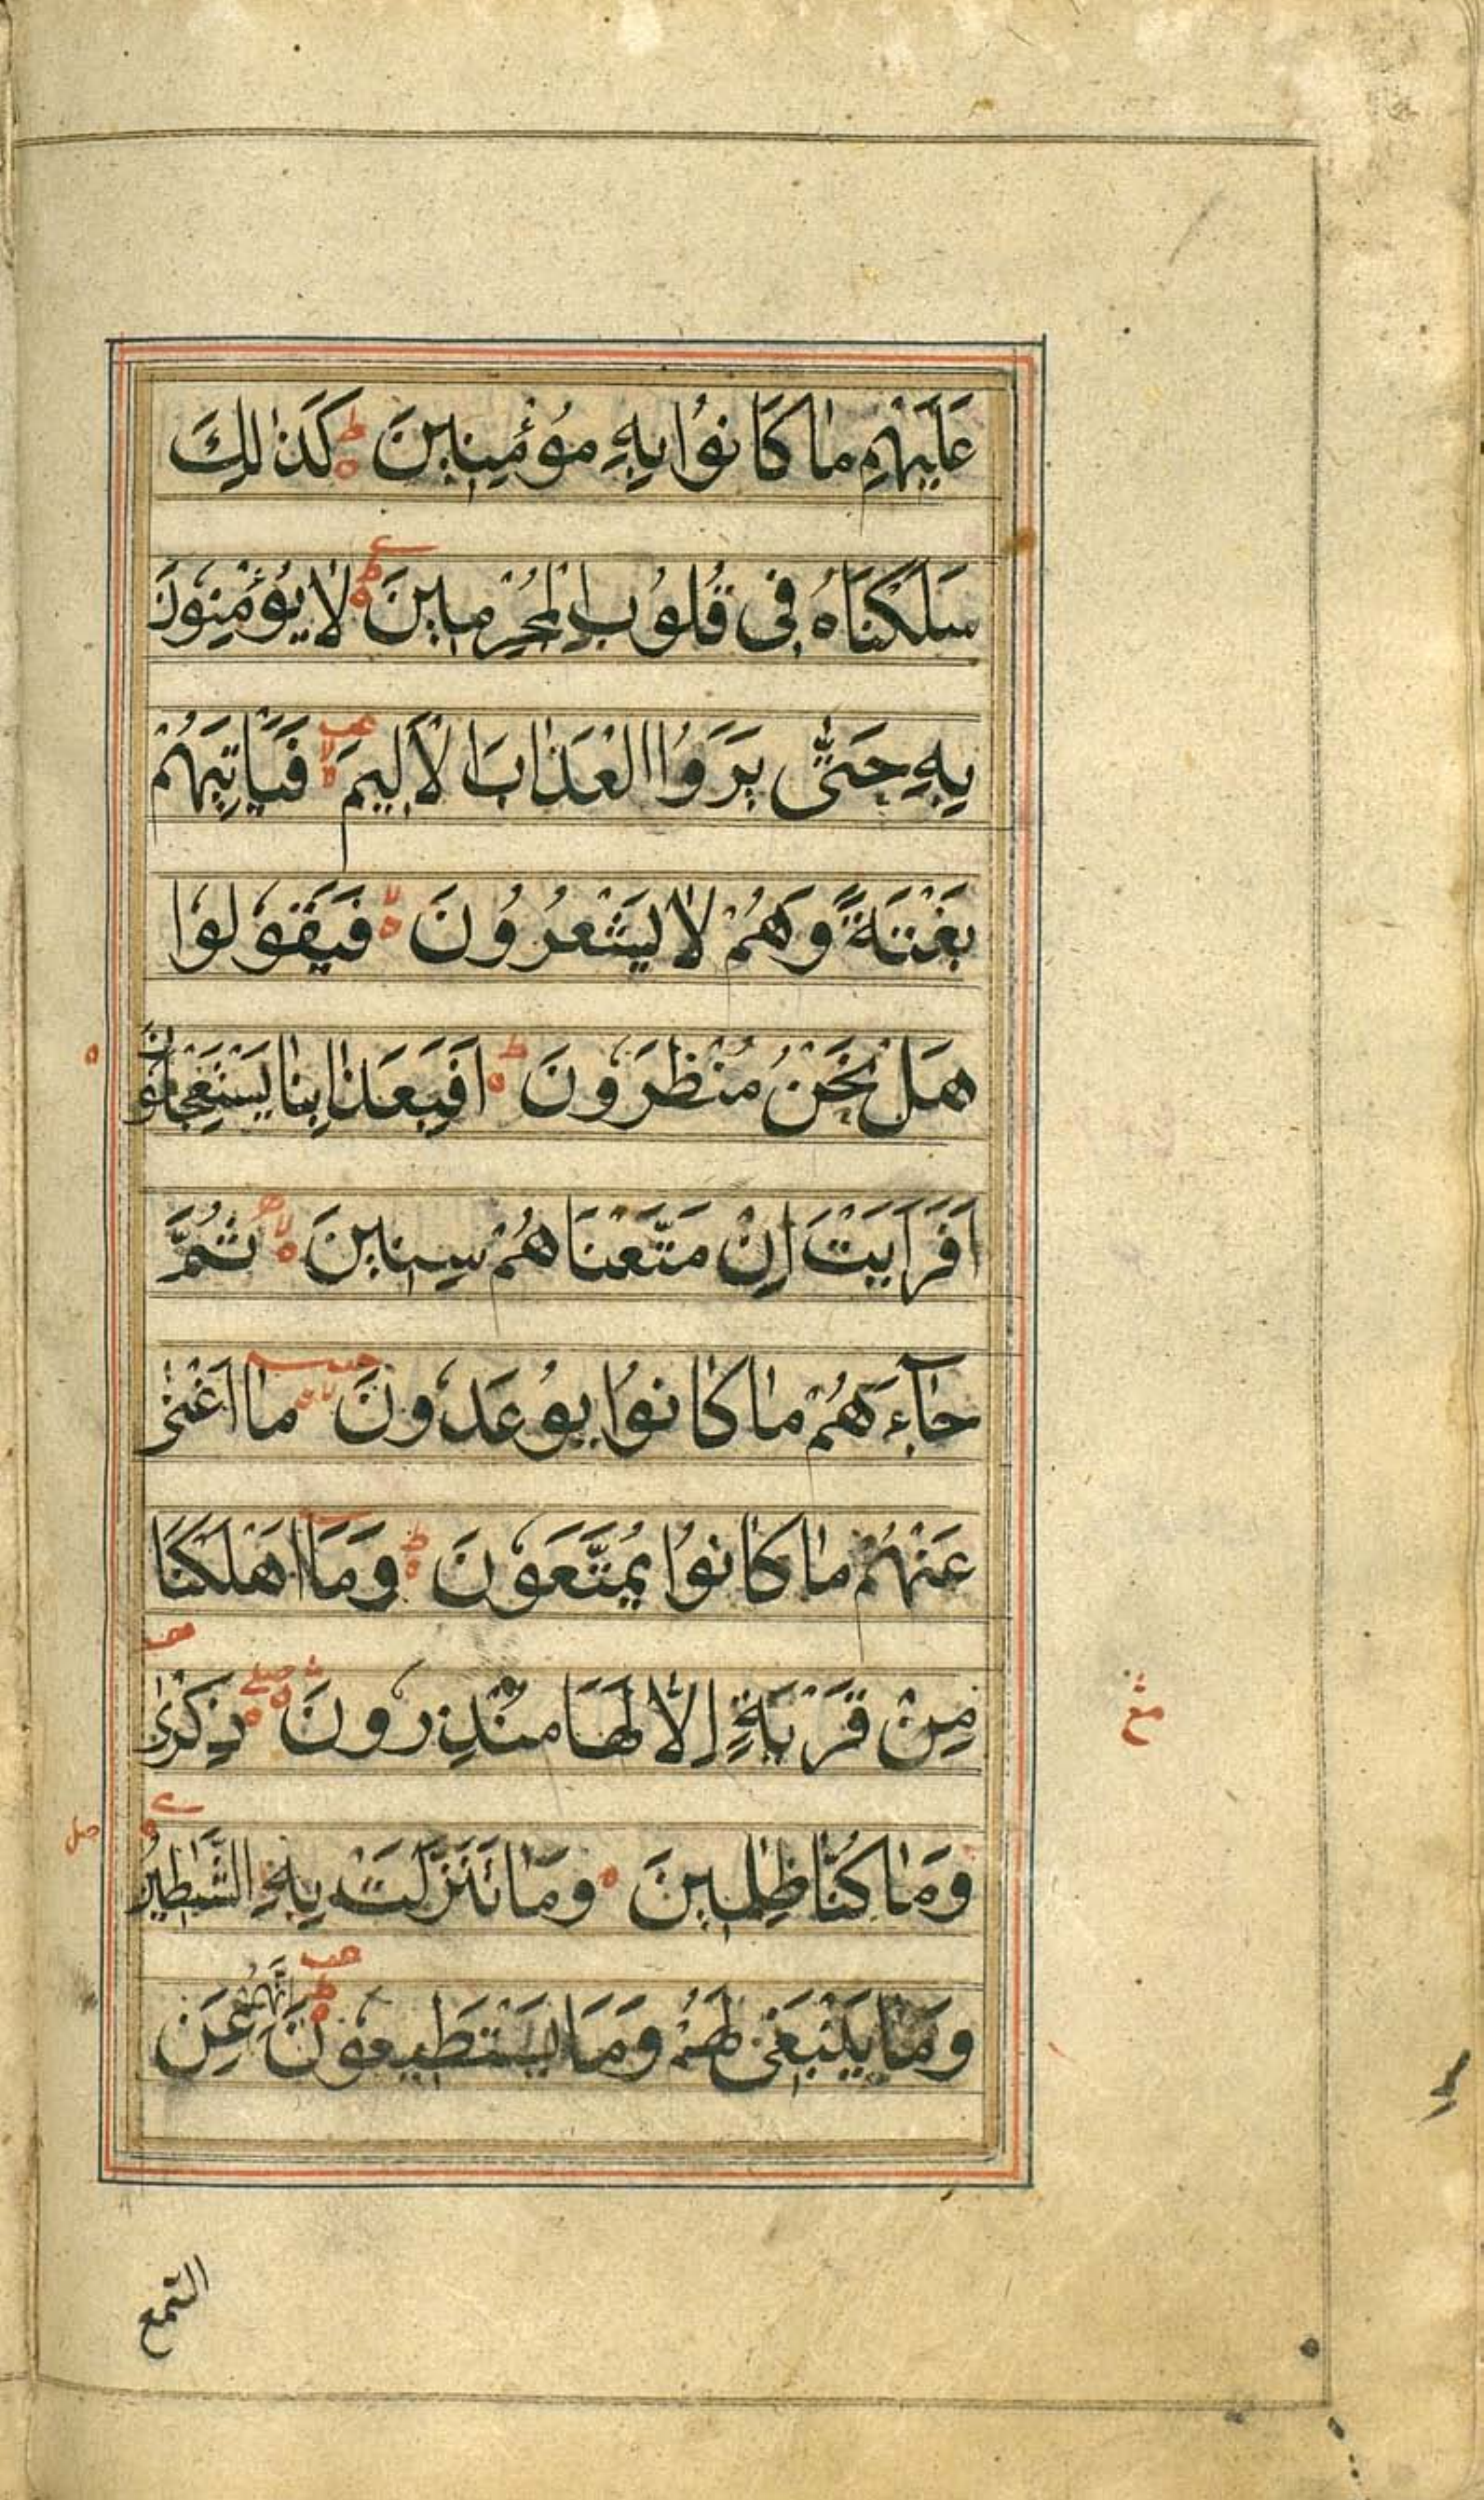 عَلَيْهِمْ مَا كَانُوا بِهِ مُؤْمِنِينَ ط كَذٰلِكَ
سَلَكْنَاهُ فِى قُلُوبِ الْمُجْرِمِينَ ط لَا يُؤْمِنُونَ
بِهِ حَتّٰى يَرَوُا الْعَذَابَ الْاَلِيمَ لا فَيَأْتِيَهُمْ
بَغْتَةً وَهُمْ لَا يَشْعُرُونَ لا فَيَقُولُوا
هَلْ نَحْنُ مُنْظَرُونَ ط اَفَبِعَذَابِنَا يَسْتَعْجِلُونَ
اَفَرَاَيْتَ اِنْ مَتَّعْنَاهُمْ سِنِينَ لا ثُمَّ
جَآءَهُمْ مَا كَانُوا يُوعَدُونَ لا مَا اَغْنٰى
عَنْهُمْ مَا كَانُوا يُمَتَّعُونَ ط وَمَا اَهْلَكْنَا
مِنْ قَرْيَةٍ اِلَّا لَهَا مُنْذِرُونَ صلے ذِكْرٰى
وَمَا كُنَّا ظٰلِمِينَ وَمَا تَنَزَّلَتْ بِهِ الشَّيٰطِينُ
وَمَا يَنْبَغِى لَهُمْ وَمَا يَسْتَطِيعُونَ ط اِنَّهُمْ عَنِ
السّمع